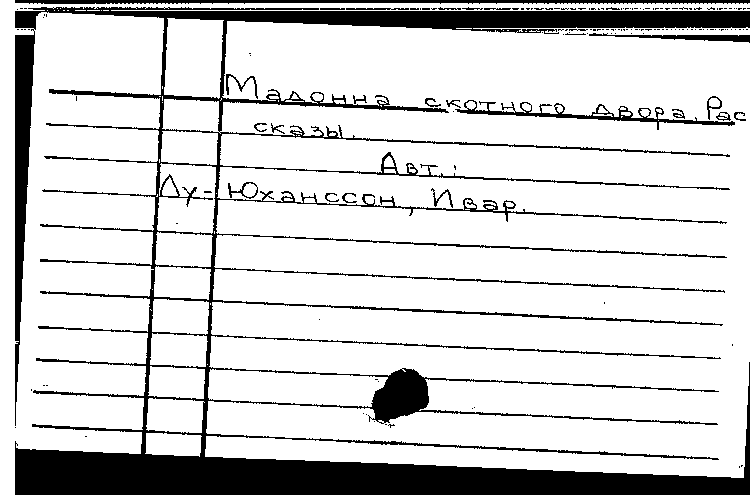 Мадонна скотного двора. Рас
сказы.
Авт.:
Лу-Юханссон, Ивар.